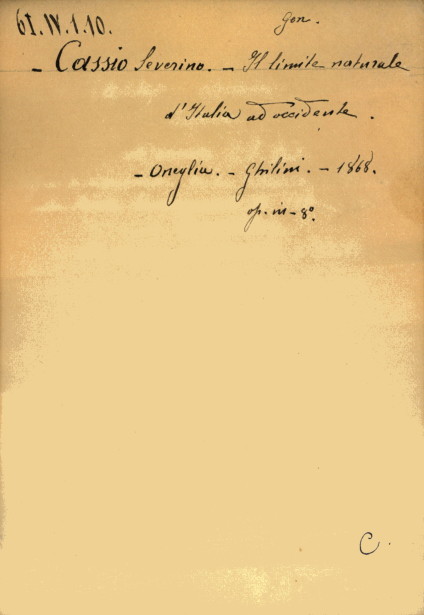 61.IV.1.10.
Gen.
- Cassio Severino. - Il limite naturale
d'Italia ad occidente.
- Oneglia. - Ghilini. - 1868.
op. in-8°.
C.